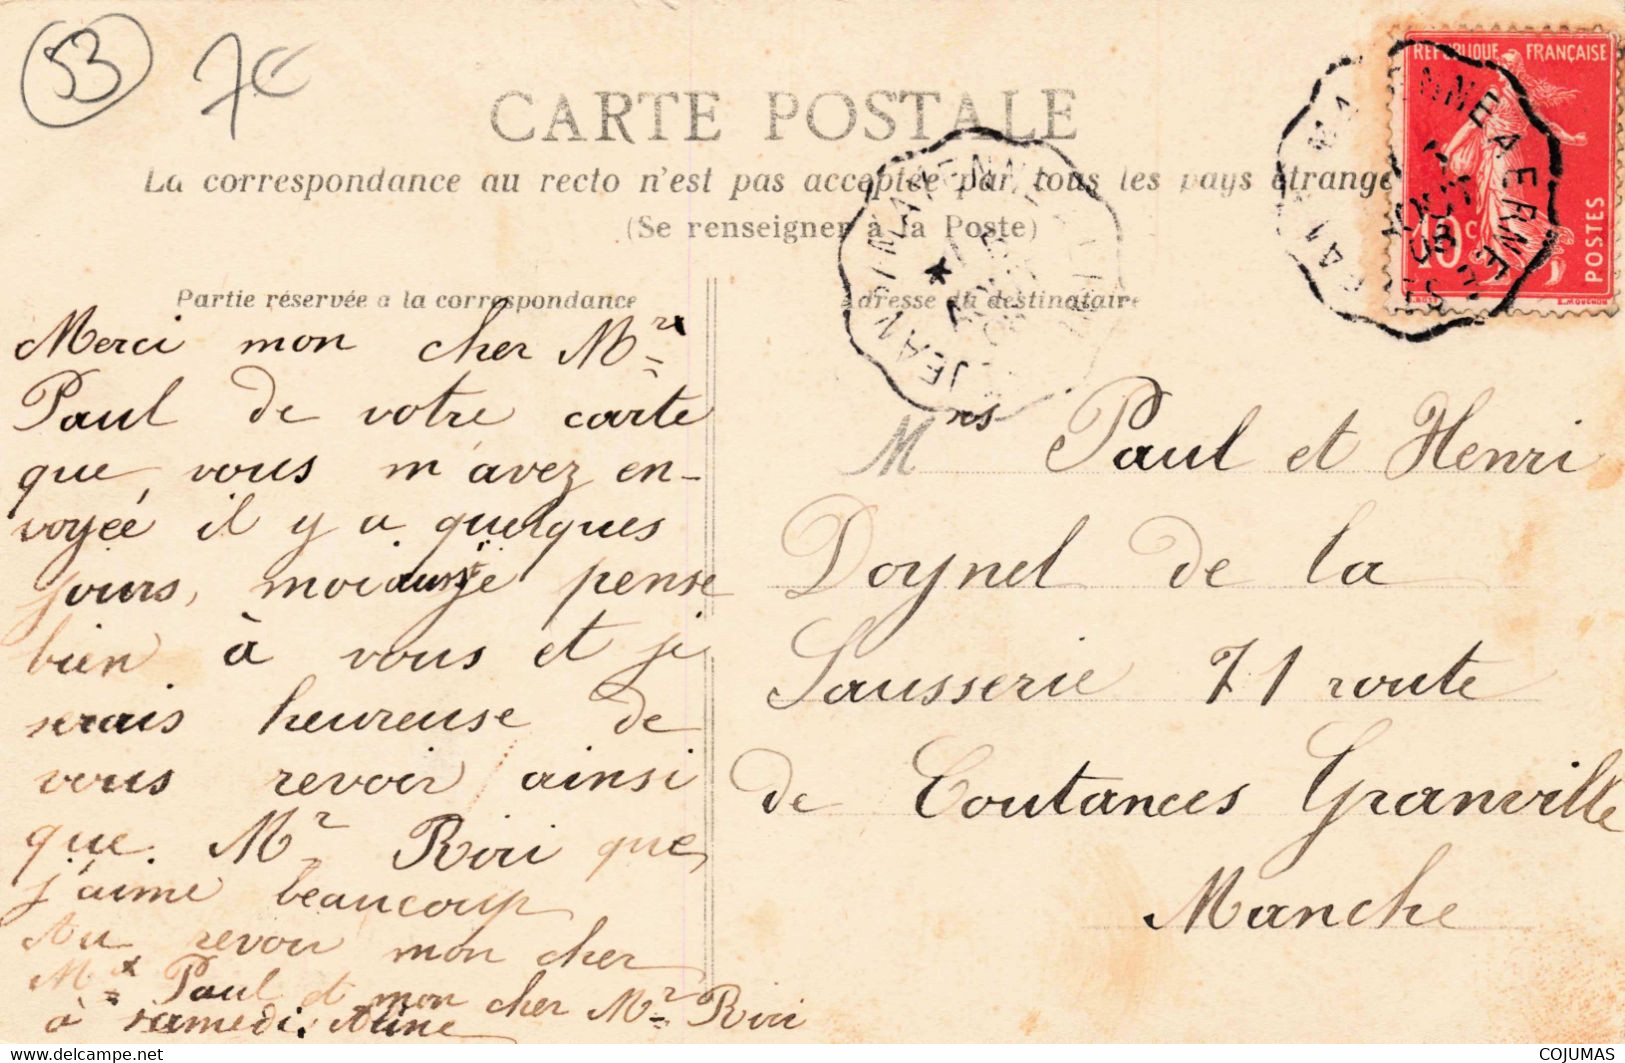 53
7€
CARTE POSTALE
La correspondance au recto n'est pas acceptée par tous les pays étrange
(Se renseigner à la Poste)
Partie réservée a la correspondance
Merci mon cher Mr
Paul de votre carte
que, vous m'avez en-
voyée il y a quelques
jours, moi aussi je pense
bien à vous et je
serais heureuse de
vous revoir ainsi
que Mr Riri que
j'aime beaucoup
Au revoir mon cher
Mr Paul et mon cher Mr Riri
à samedi. Aline
Adresse du destinataire
Mrs Paul et Henri
Doynel de la
Sausserie 71 route
de Coutances Granville
Manche
RÉPUBLIQUE FRANÇAISE
10c
POSTES
E. MOUCHON
MAYENNE A ERNÉE
COJUMAS
www.delcampe.net